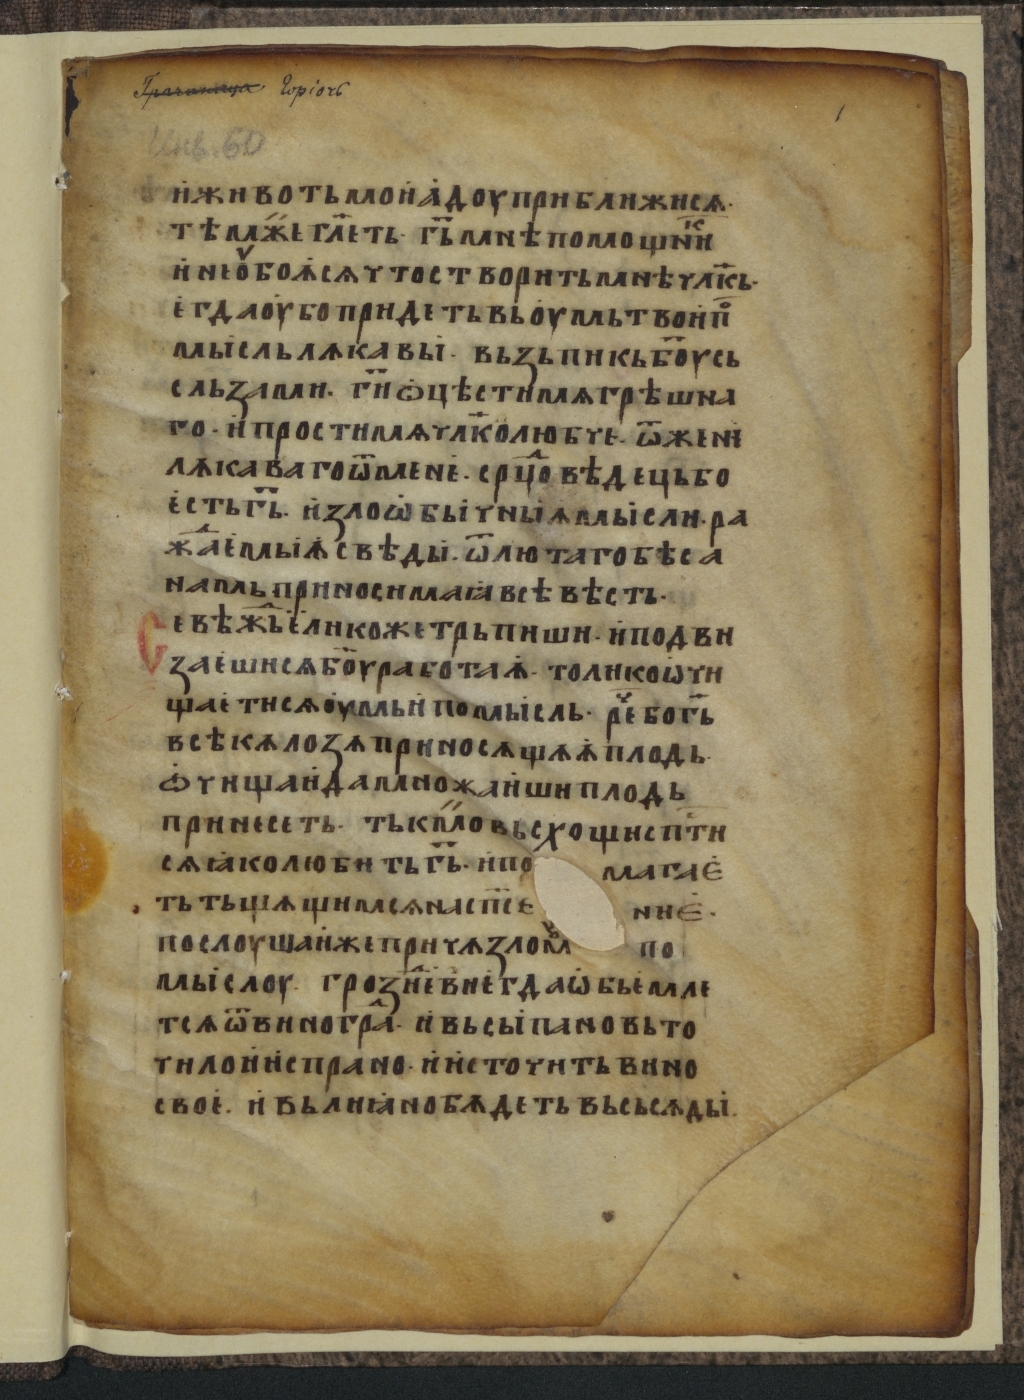 Юріочъ
1
Инв. 60
и҆животь мои а҆доу приближисѧ·
тѣмже гл҃еть· г҃ь мнѣ помощникь
и҆ не ѹбоѭсѧ что створить мнѣ чл҃кь·
е҆гда оу҆бо придеть вь оу҆мь твои по
мысль лѫкавы· вьзьпи кь б҃оу сь
сльзами· г҃и ѡ҆цѣсти мѧ грѣшна
го· и҆ прости мѧ чл҃колюбче· ѿжени
лѫкаваго ѿ мене· ср҃цовѣдець бо
е҆сть г҃ь· и҆ зло ѡбычныѧ мысли· ра
жⷣаемыѧ свѣды· ѿ лютаго бѣса
намь приносимаꙗ всѣ вѣсть·
Севѣжⷣь еликоже трьпиши· и҆ подви
заешисѧ б҃оу работаѧ· толико ѡчи
щаетисѧ оу҆мь и помысль· рⷱе бо г҃ь
всѣкѫ лозѫ приносѧщѫѫ плодь
ѡ҆чищаи да множаиши плодь
принесеть· тькмо вьсхощи сп҃ти
сѧ ꙗко любить г҃ь· и҆ по магае҆
ть тьщѧщимсѧ на сп҃се ние·
послоушаи же причѧ зломⷹ по
мыслоу· грознїе внегда ѡбьемле
тсѧ ѿ виногрⷣа· и҆ вьсыпано вь то
чило и испрано· и҆ источить вино
свое· и҆ вьлиꙗно бѫдеть вь сьсѫды